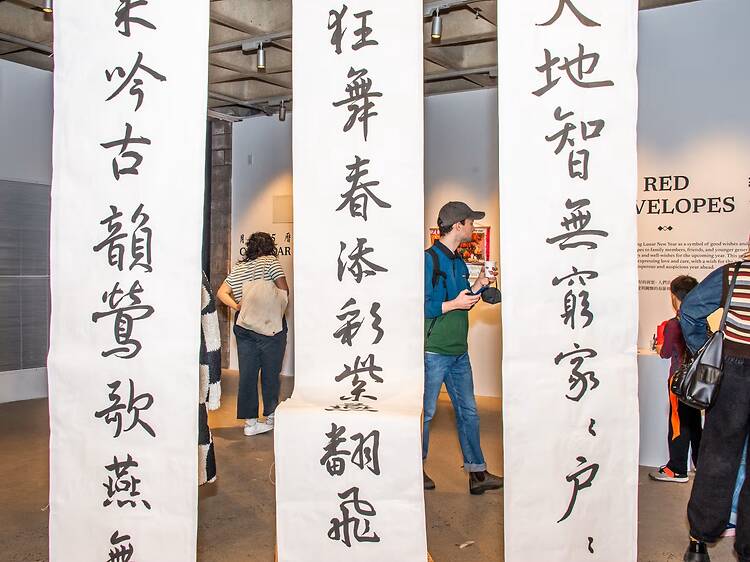 地智無窮家〻戶〻
狂舞春添彩紫翻飛
吟古韻鶯歌燕
RED
VELOPES
Lunar New Year as a symbol of good wishes and
to family members, friends, and younger
and well-wishes for the upcoming year. This
expressing love and care, with a wish for the
and auspicious year ahead